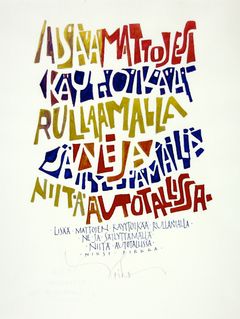 LISÄÄ MATTOJESI
KÄYTTÖIKÄÄ
RULLAAMALLA
NIITÄ AUTOTALLISSA.
LISÄÄ MATTOJEN KÄYTTÖIKÄÄ RULLAMALLA ·
NE JA SÄILYTTÄMÄLLÄ ·
NIITÄ AUTOTALLISSA ·
· NIKSI-PIRKKA ·